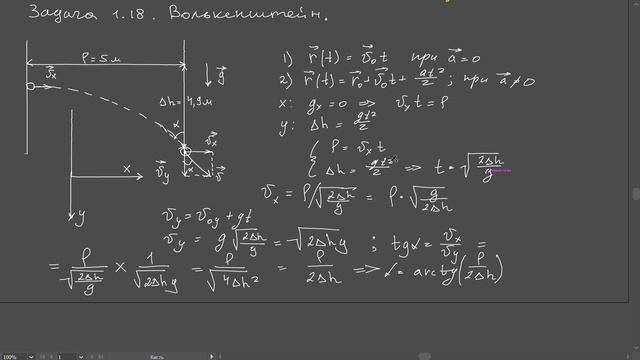 Задача 1.18. Волькенштейн.
ρ = 5 м
v⃗x
g⃗
Δh = 4,9 м
α
v⃗x
α
v⃗y
v⃗
x
y
1) r⃗(t) = v⃗₀t при a⃗ = 0
2) r⃗(t) = r⃗₀ + v⃗₀t + at²/2 ; при a⃗ ≠ 0
x: gx = 0 => vx t = ρ
y: Δh = gt²/2
{ ρ = vx t
{ Δh = gt²/2 => t = √(2Δh/g)
vx = ρ/√(2Δh/g) = ρ·√(g/2Δh)
vy = v₀y + gt
vy = g√(2Δh/g) = √(2Δhg) ; tgα = vx/vy =
= ρ/√(2Δh/g) × 1/√(2Δhg) = ρ/√(4Δh²) = ρ/2Δh => α = arctg(ρ/2Δh)
100%
1
Кисть